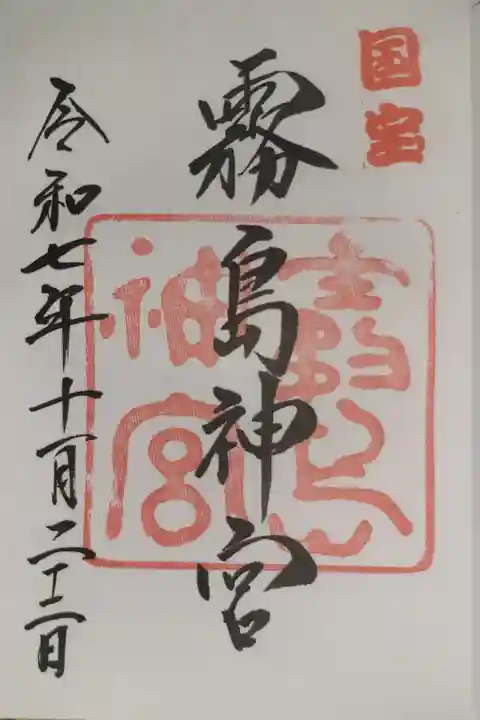 国宝
霧島神宮
霧島
神宮
令和七年十一月二十二日